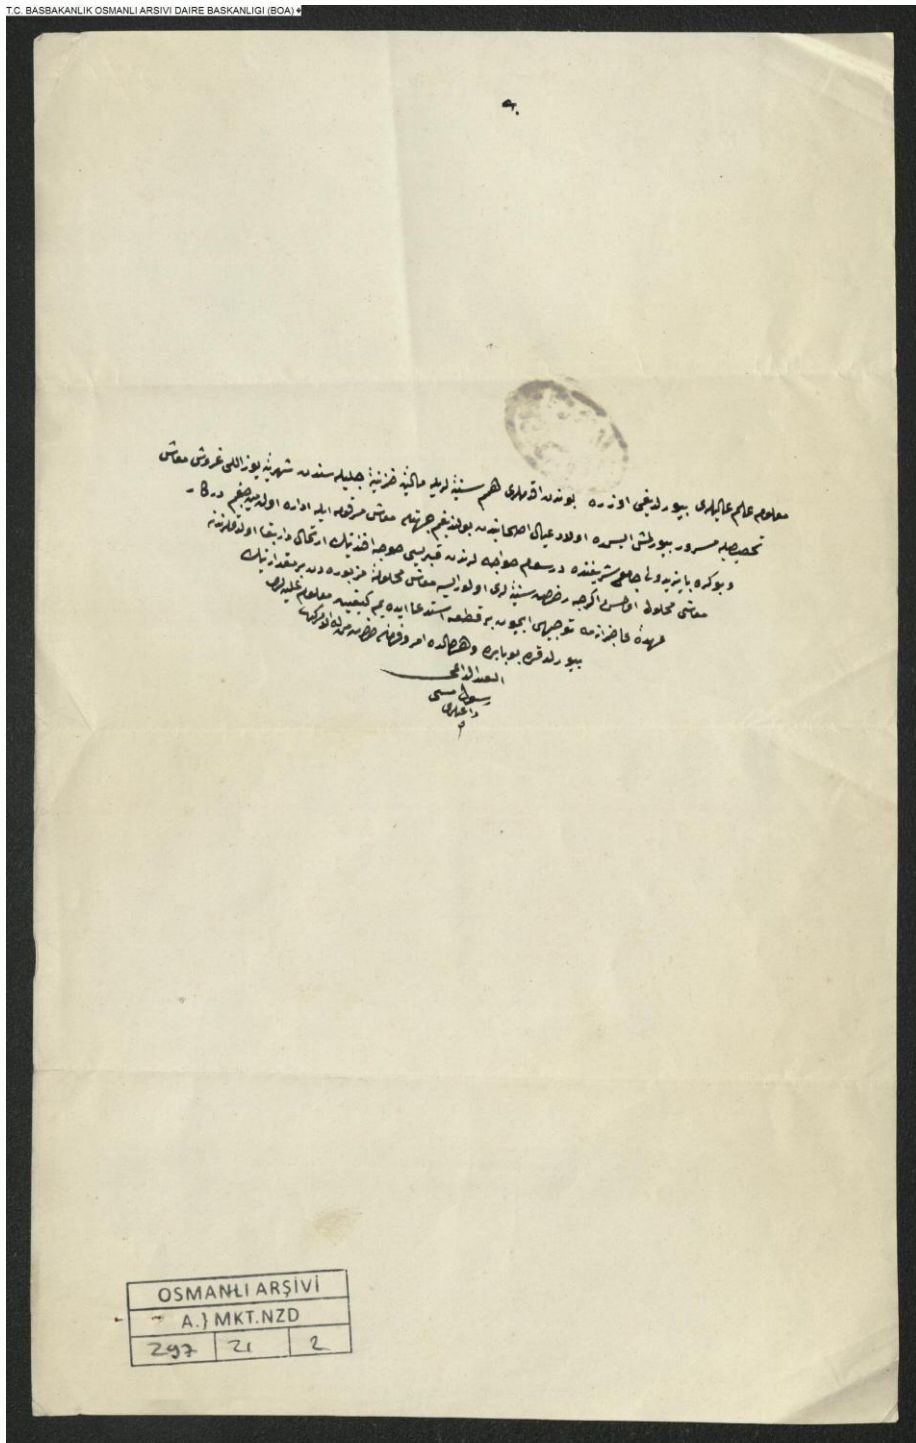 T.C. BASBAKANLIK OSMANLI ARSIVI DAIRE BASKANLIGI (BOA)
معلوم عالم عاليلرى بيورلديغى اوزره بوندن اقدملرى همم سنيه لريله ماليه خزينه جليله سندن شهريه يوز اللى غروش معاش
تخصيصيله مسرور بيورلمش ايسه ده اولاد عيال اصحابندن بولنديغم جهتله معاش مرقوم ايله اداره اولنه ميه جغم دركار
وبوكره بايزيد ولى جامع شريفنده درسعام خواجه لرندن قبريسى خواجه افندينك ارتحال دار بقا اولدقلرندن
معاشى محلول اولمش اكرچه رخصت سنيه لرى اولور ايسه معاش محلوله مزبوره دن بر مقدارينك
عهده عاجزانه مه توجيهى ايچون بر قطعه استدعا ايده يم كيفيت معلوم عليه لرى
بيورلدقده بو بابده وهر حالده امر وفرمان حضرت من له الامركدر
العبد الداعى
رسول
داعيلرى
OSMANLI ARŞİVİ
A.} MKT.NZD
297 21 2